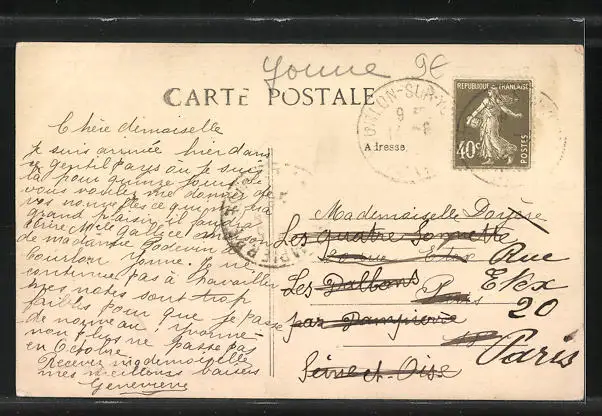 Yonne 9€
CARTE POSTALE
REPUBLIQUE FRANÇAISE
40c
POSTES
Adresse
Chère demoiselle
Je suis arrivée hier dans
ce gentil pays où je suis
là pour quinze jours. Si
vous voulez me donner de
vos nouvelles ce qui me fera
grand plaisir il faudra
écrire Melle Gallice
de madame
Yonne. Je ne
continue pas à travailler
mes notes sont trop
faibles pour que je passe
de nouveau
non plus ne passe pas
en Octobre.
Recevez mademoiselle
mes meilleurs baisers
Geneviève
Mademoiselle
Les quatre
Les
par Dampierre
Seine-et-Oise
Rue
Etex
20
Paris